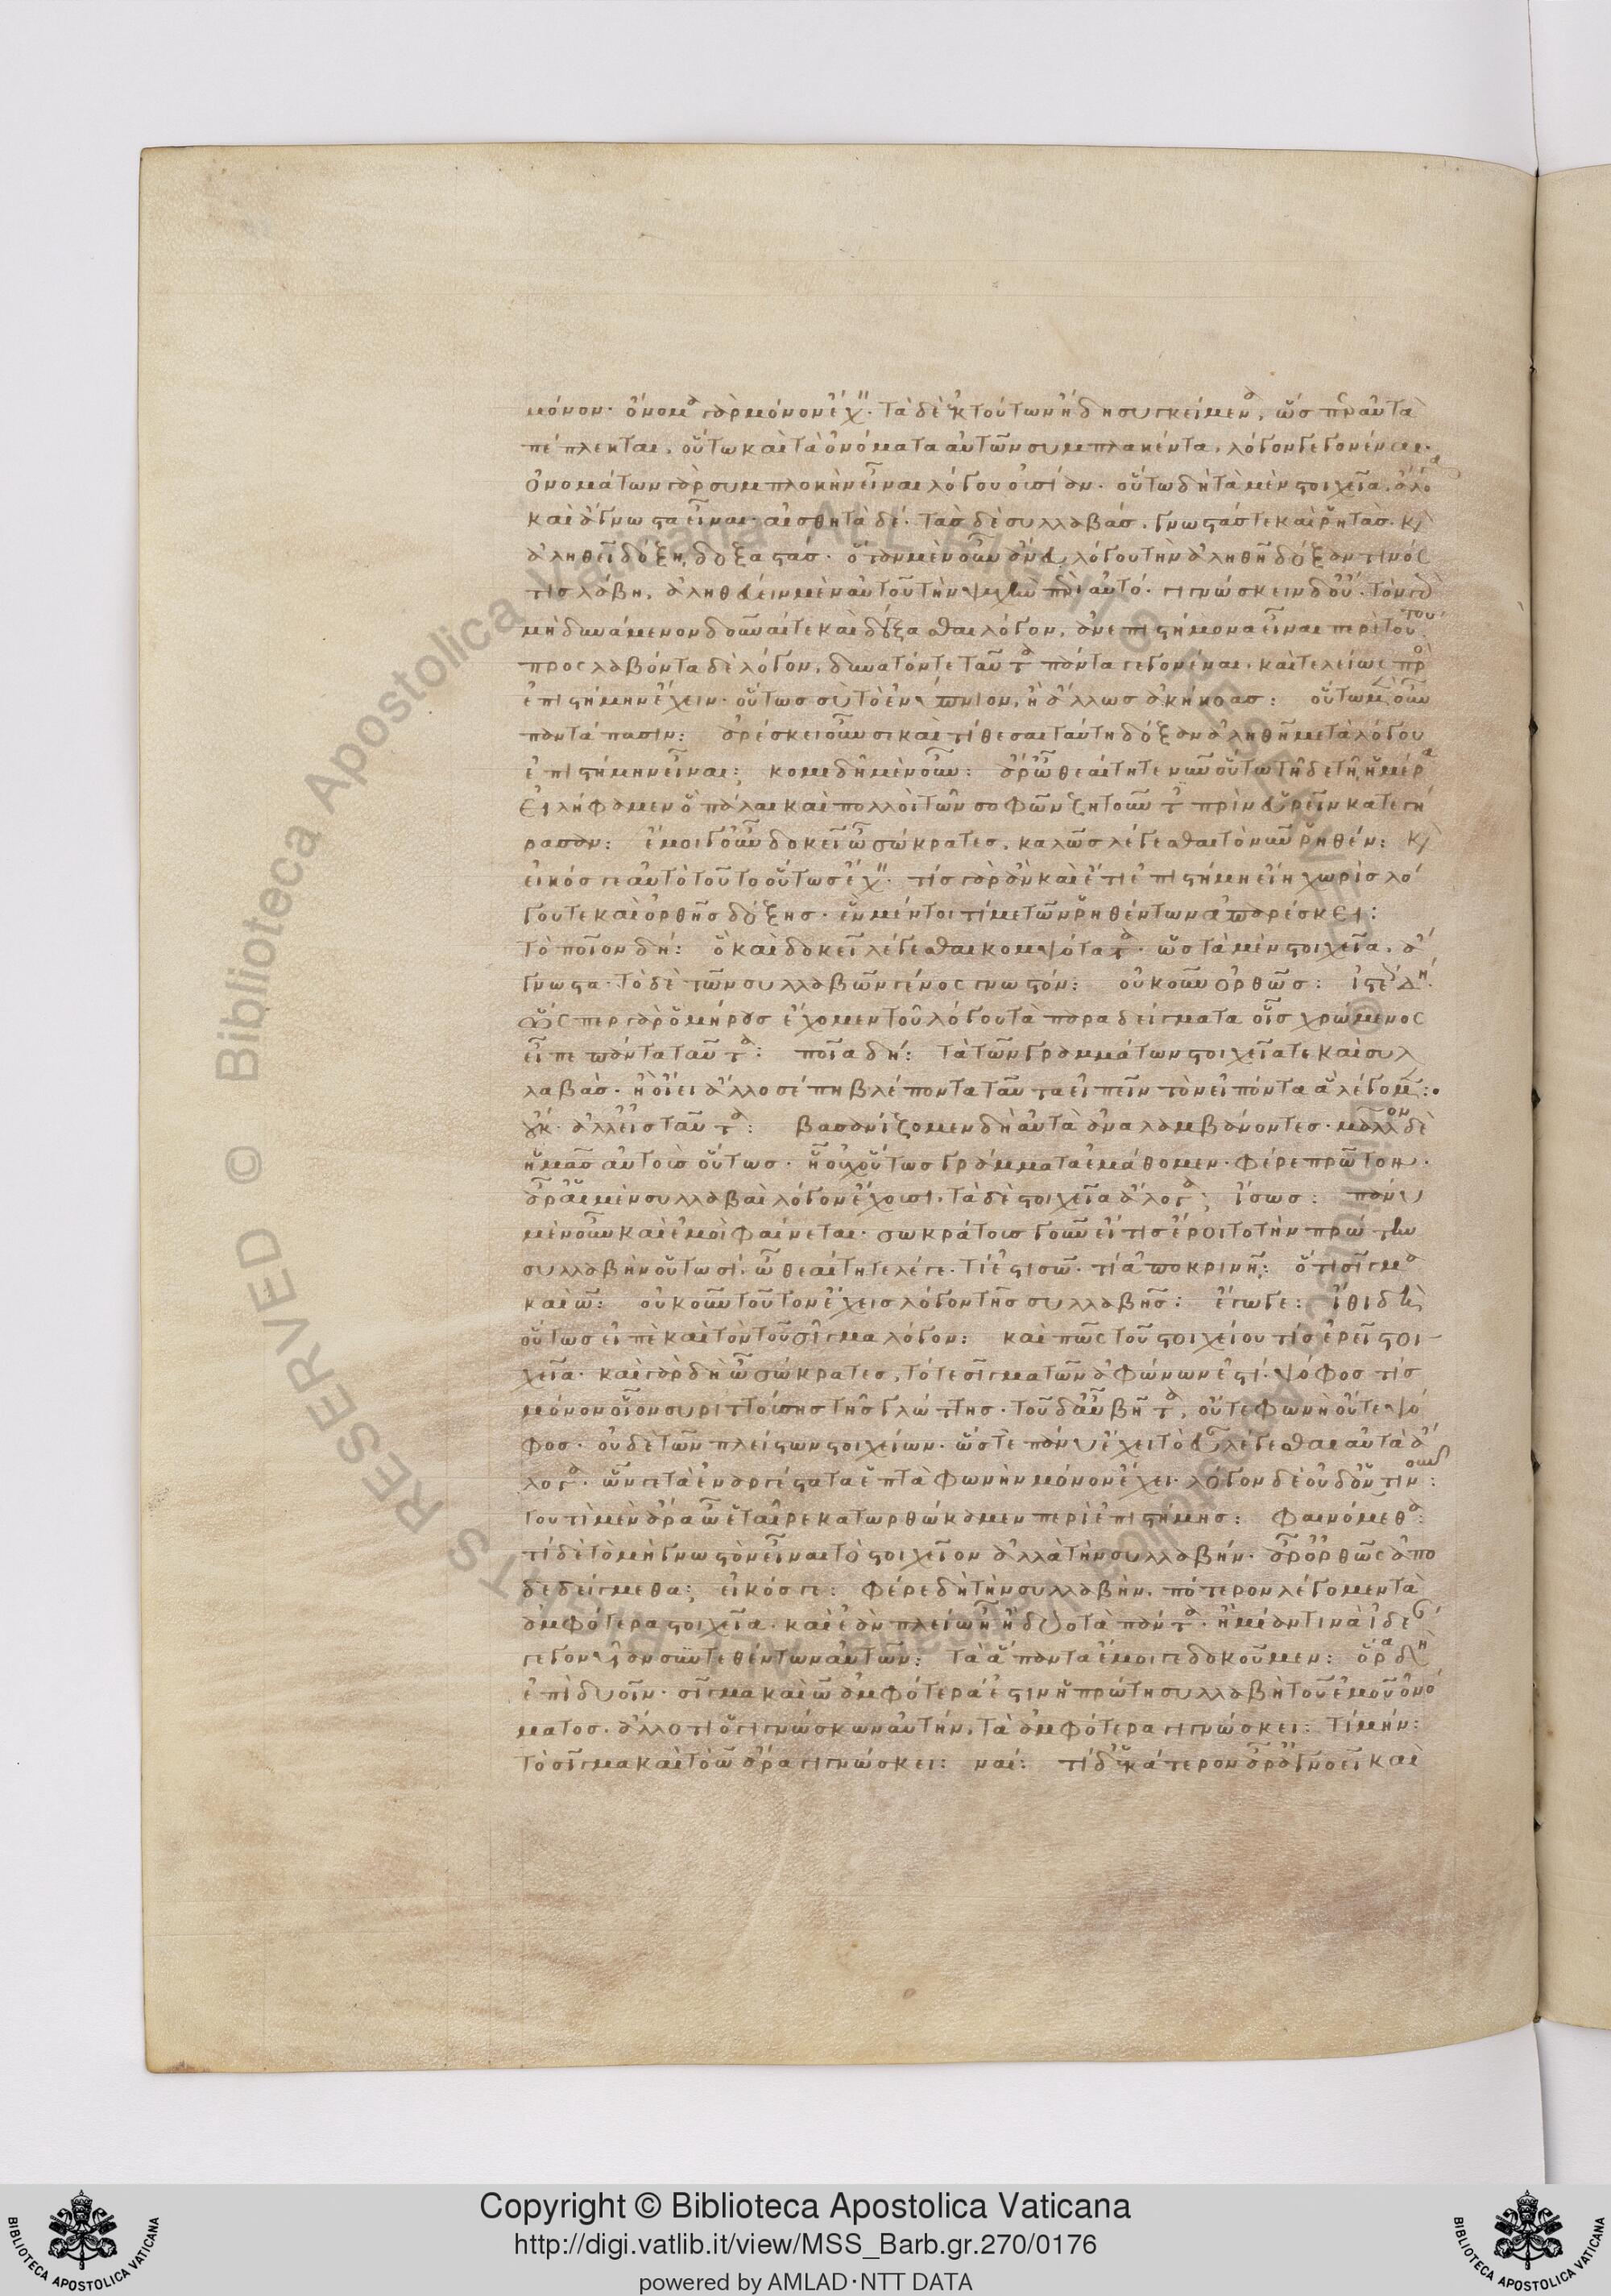 μόνον· ὄνομα γὰρ μόνον ἔχειν· τὰ δὲ ἐκ τούτων ἤδη συγκείμενα, ὥσπερ αὐτὰ
πέπλεκται, οὕτω καὶ τὰ ὀνόματα αὐτῶν συμπλακέντα, λόγον γεγονέναι·
ὀνομάτων γὰρ συμπλοκὴν εἶναι λόγου οὐσίαν· οὕτω δὴ τὰ μὲν στοιχεῖα, ἄλογα
καὶ ἄγνωστα εἶναι· αἰσθητὰ δέ· τὰς δὲ συλλαβάς, γνωστάς τε καὶ ῥητὰς· καὶ
ἀληθεῖ δόξη, δοξαστάς· ὅταν μὲν οὖν ἄνευ λόγου τὴν ἀληθῆ δόξαν τινός
τις λάβη, ἀληθεύειν μὲν αὐτοῦ τὴν ψυχὴν περὶ αὐτό· γιγνώσκειν δ' οὔ· τὸν γὰρ
μὴ δυνάμενον δοῦναί τε καὶ δέξασθαι λόγον, ἀνεπιστήμονα εἶναι περὶ τούτου·
προσλαβόντα δὲ λόγον, δυνατόν τε ταῦτα πάντα γεγονέναι, καὶ τελείως πρὸς
ἐπιστήμην ἔχειν· οὕτως σὺ τὸ ἐνύπνιον, ἢ ἄλλως ἀκήκοας: οὕτω μὲν οὖν
παντάπασιν: ἀρέσκει οὖν σε καὶ τίθεσαι ταύτη δόξαν ἀληθῆ μετὰ λόγου
ἐπιστήμην εἶναι; κομιδῆ μὲν οὖν: ἆρ' ὦ θεαίτητε νῦν οὕτω τῆδε τῆ ἡμέρα
εἰλήφαμεν ὃ πάλαι καὶ πολλοὶ τῶν σοφῶν ζητοῦντες πρὶν εὑρεῖν κατεγή
ρασαν: ἐμοὶ γοῦν δοκεῖ ὦ σώκρατες, καλῶς λέγεσθαι τὸ νῦν ῥηθέν: καὶ
εἰκός γε αὐτὸ τοῦτο οὕτως ἔχειν· τίς γὰρ ἂν καὶ ἔτι ἐπιστήμη εἴη χωρὶς λό
γου τε καὶ ὀρθῆς δόξης· ἓν μέντοι τί με τῶν ῥηθέντων ἀπαρέσκει:
τὸ ποῖον δή: ὃ καὶ δοκεῖ λέγεσθαι κομψότατα· ὡς τὰ μὲν στοιχεῖα, ἄ
γνωστα· τὸ δὲ τῶν συλλαβῶν γένος γνωστόν: οὐκοῦν ὀρθῶς: ἰστέον δή·
ὥσπερ γὰρ ὁμήρους ἔχομεν τοῦ λόγου τὰ παραδείγματα οἷς χρώμενος
εἶπε πάντα ταῦτα: ποῖα δή: τὰ τῶν γραμμάτων στοιχεῖά τε καὶ συλ
λαβὰς· ἢ οἴει ἄλλοσέ πη βλέποντα ταῦτα εἰπεῖν τὸν εἰπόντα ἃ λέγομεν:
οὐκ· ἀλλ' εἰς ταῦτα: βασανίζομεν δὴ αὐτὰ ἀναλαμβάνοντες· μᾶλλον δὲ
ἡμᾶς αὐτοὺς οὕτως· ἢ οὐχ οὕτως γράμματα ἐμάθομεν· φέρε πρῶτον·
ἆρ' αἱ μὲν συλλαβαὶ λόγον ἔχουσι, τὰ δὲ στοιχεῖα ἄλογα; ἴσως: πάνυ
μὲν οὖν καὶ ἐμοὶ φαίνεται· σωκράτους γοῦν εἴ τις ἔροιτο τὴν πρώτην
συλλαβὴν οὕτωσί· ὦ θεαίτητε λέγε· τί ἐστι σω· τί ἀποκρινῆ: ὅτι σῖγμα
καὶ ω: οὐκοῦν τοῦτον ἔχεις λόγον τῆς συλλαβῆς: ἔγωγε: ἴθι δὴ
οὕτως εἰπὲ καὶ τὸν τοῦ σῖγμα λόγον: καὶ πῶς τοῦ στοιχείου τίς ἐρεῖ στοι
χεῖα· καὶ γὰρ δὴ ὦ σώκρατες, τό τε σῖγμα τῶν ἀφώνων ἐστί· ψόφος τίς
μόνον οἷον συριττούσης τῆς γλώττης· τοῦ δ' αὖ βῆτα, οὔτε φωνὴ οὔτε ψό
φος· οὐδὲ τῶν πλείστων στοιχείων· ὥστε πάνυ ἔχει τὸ εὖ λέγεσθαι αὐτὰ ἄ
λογα· ὧν γε τὰ ἐναργέστατα ἑπτὰ φωνὴν μόνον ἔχει· λόγον δὲ οὐδ' ὁντινοῦν:
τουτὶ μὲν ἄρα ὦ ἑταῖρε κατωρθώκαμεν περὶ ἐπιστήμης: φαινόμεθα:
τί δὲ τὸ μὴ γνωστὸν εἶναι τὸ στοιχεῖον ἀλλὰ τὴν συλλαβήν· ἆρ' ὀρθῶς ἀπο
δεδείγμεθα; εἰκός γε: φέρε δὴ τὴν συλλαβὴν, πότερον λέγομεν τὰ
ἀμφότερα στοιχεῖα· καὶ ἐὰν πλείω ἢ ἢ δύο τὰ πάντα· ἢ μίαν τινὰ ἰδέαν
γεγονυῖαν συντεθέντων αὐτῶν: τὰ ἅπαντα ἔμοιγε δοκοῦμεν: ὅρα δὴ
ἐπὶ δυοῖν· σῖγμα καὶ ω ἀμφότερά ἐστιν ἡ πρώτη συλλαβὴ τοῦ ἐμοῦ ὀνό
ματος· ἄλλο τι ὁ γιγνώσκων αὐτήν, τὰ ἀμφότερα γιγνώσκει: τί μήν:
τὸ σῖγμα καὶ τὸ ω ἄρα γιγνώσκει: ναί: τί δ' ἑκάτερον ἆρ' ἀγνοεῖ καὶ
Copyright © Biblioteca Apostolica Vaticana
http://digi.vatlib.it/view/MSS_Barb.gr.270/0176
powered by AMLAD·NTT DATA